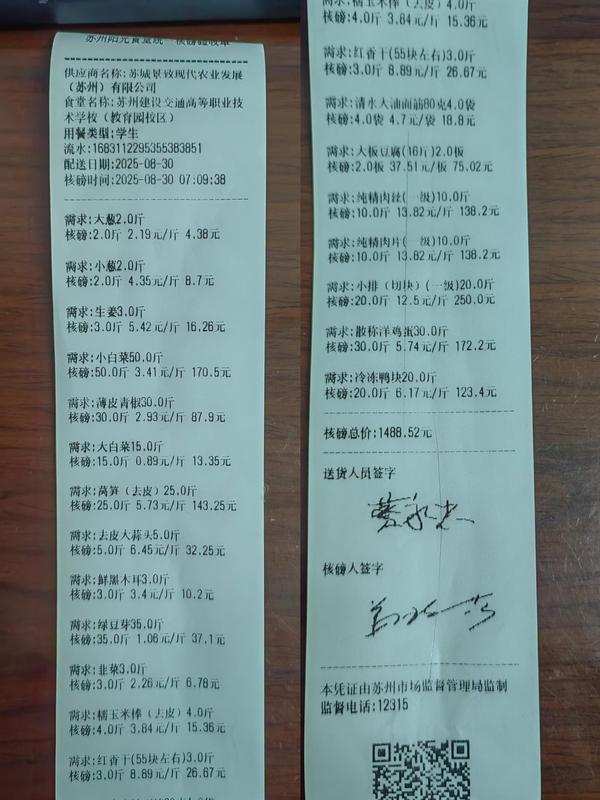 苏州阳光食堂统一核磅验收单
供应商名称:苏城景致现代农业发展
(苏州)有限公司
食堂名称:苏州建设交通高等职业技
术学校(教育园校区)
用餐类型:学生
流水:1683112295355383851
配送日期:2025-08-30
核磅时间:2025-08-30 07:09:38
需求:大葱2.0斤
核磅:2.0斤 2.19元/斤 4.38元
需求:小葱2.0斤
核磅:2.0斤 4.35元/斤 8.7元
需求:生姜3.0斤
核磅:3.0斤 5.42元/斤 16.26元
需求:小白菜50.0斤
核磅:50.0斤 3.41元/斤 170.5元
需求:薄皮青椒30.0斤
核磅:30.0斤 2.93元/斤 87.9元
需求:大白菜15.0斤
核磅:15.0斤 0.89元/斤 13.35元
需求:莴笋(去皮)25.0斤
核磅:25.0斤 5.73元/斤 143.25元
需求:去皮大蒜头5.0斤
核磅:5.0斤 6.45元/斤 32.25元
需求:鲜黑木耳3.0斤
核磅:3.0斤 3.4元/斤 10.2元
需求:绿豆芽35.0斤
核磅:35.0斤 1.06元/斤 37.1元
需求:韭菜3.0斤
核磅:3.0斤 2.26元/斤 6.78元
需求:糯玉米棒(去皮)4.0斤
核磅:4.0斤 3.84元/斤 15.36元
需求:红香干(55块左右)3.0斤
核磅:3.0斤 8.89元/斤 26.67元
需求:糯玉米棒(去皮)4.0斤
核磅:4.0斤 3.84元/斤 15.36元
需求:红香干(55块左右)3.0斤
核磅:3.0斤 8.89元/斤 26.67元
需求:清水大油面筋80克4.0袋
核磅:4.0袋 4.7元/袋 18.8元
需求:大板豆腐(16斤)2.0板
核磅:2.0板 37.51元/板 75.02元
需求:纯精肉丝(一级)10.0斤
核磅:10.0斤 13.82元/斤 138.2元
需求:纯精肉片(一级)10.0斤
核磅:10.0斤 13.82元/斤 138.2元
需求:小排(切块)(一级)20.0斤
核磅:20.0斤 12.5元/斤 250.0元
需求:散称洋鸡蛋30.0斤
核磅:30.0斤 5.74元/斤 172.2元
需求:冷冻鸭块20.0斤
核磅:20.0斤 6.17元/斤 123.4元
核磅总价:1488.52元
送货人员签字
核磅人签字
本凭证由苏州市场监督管理局监制
监督电话:12315